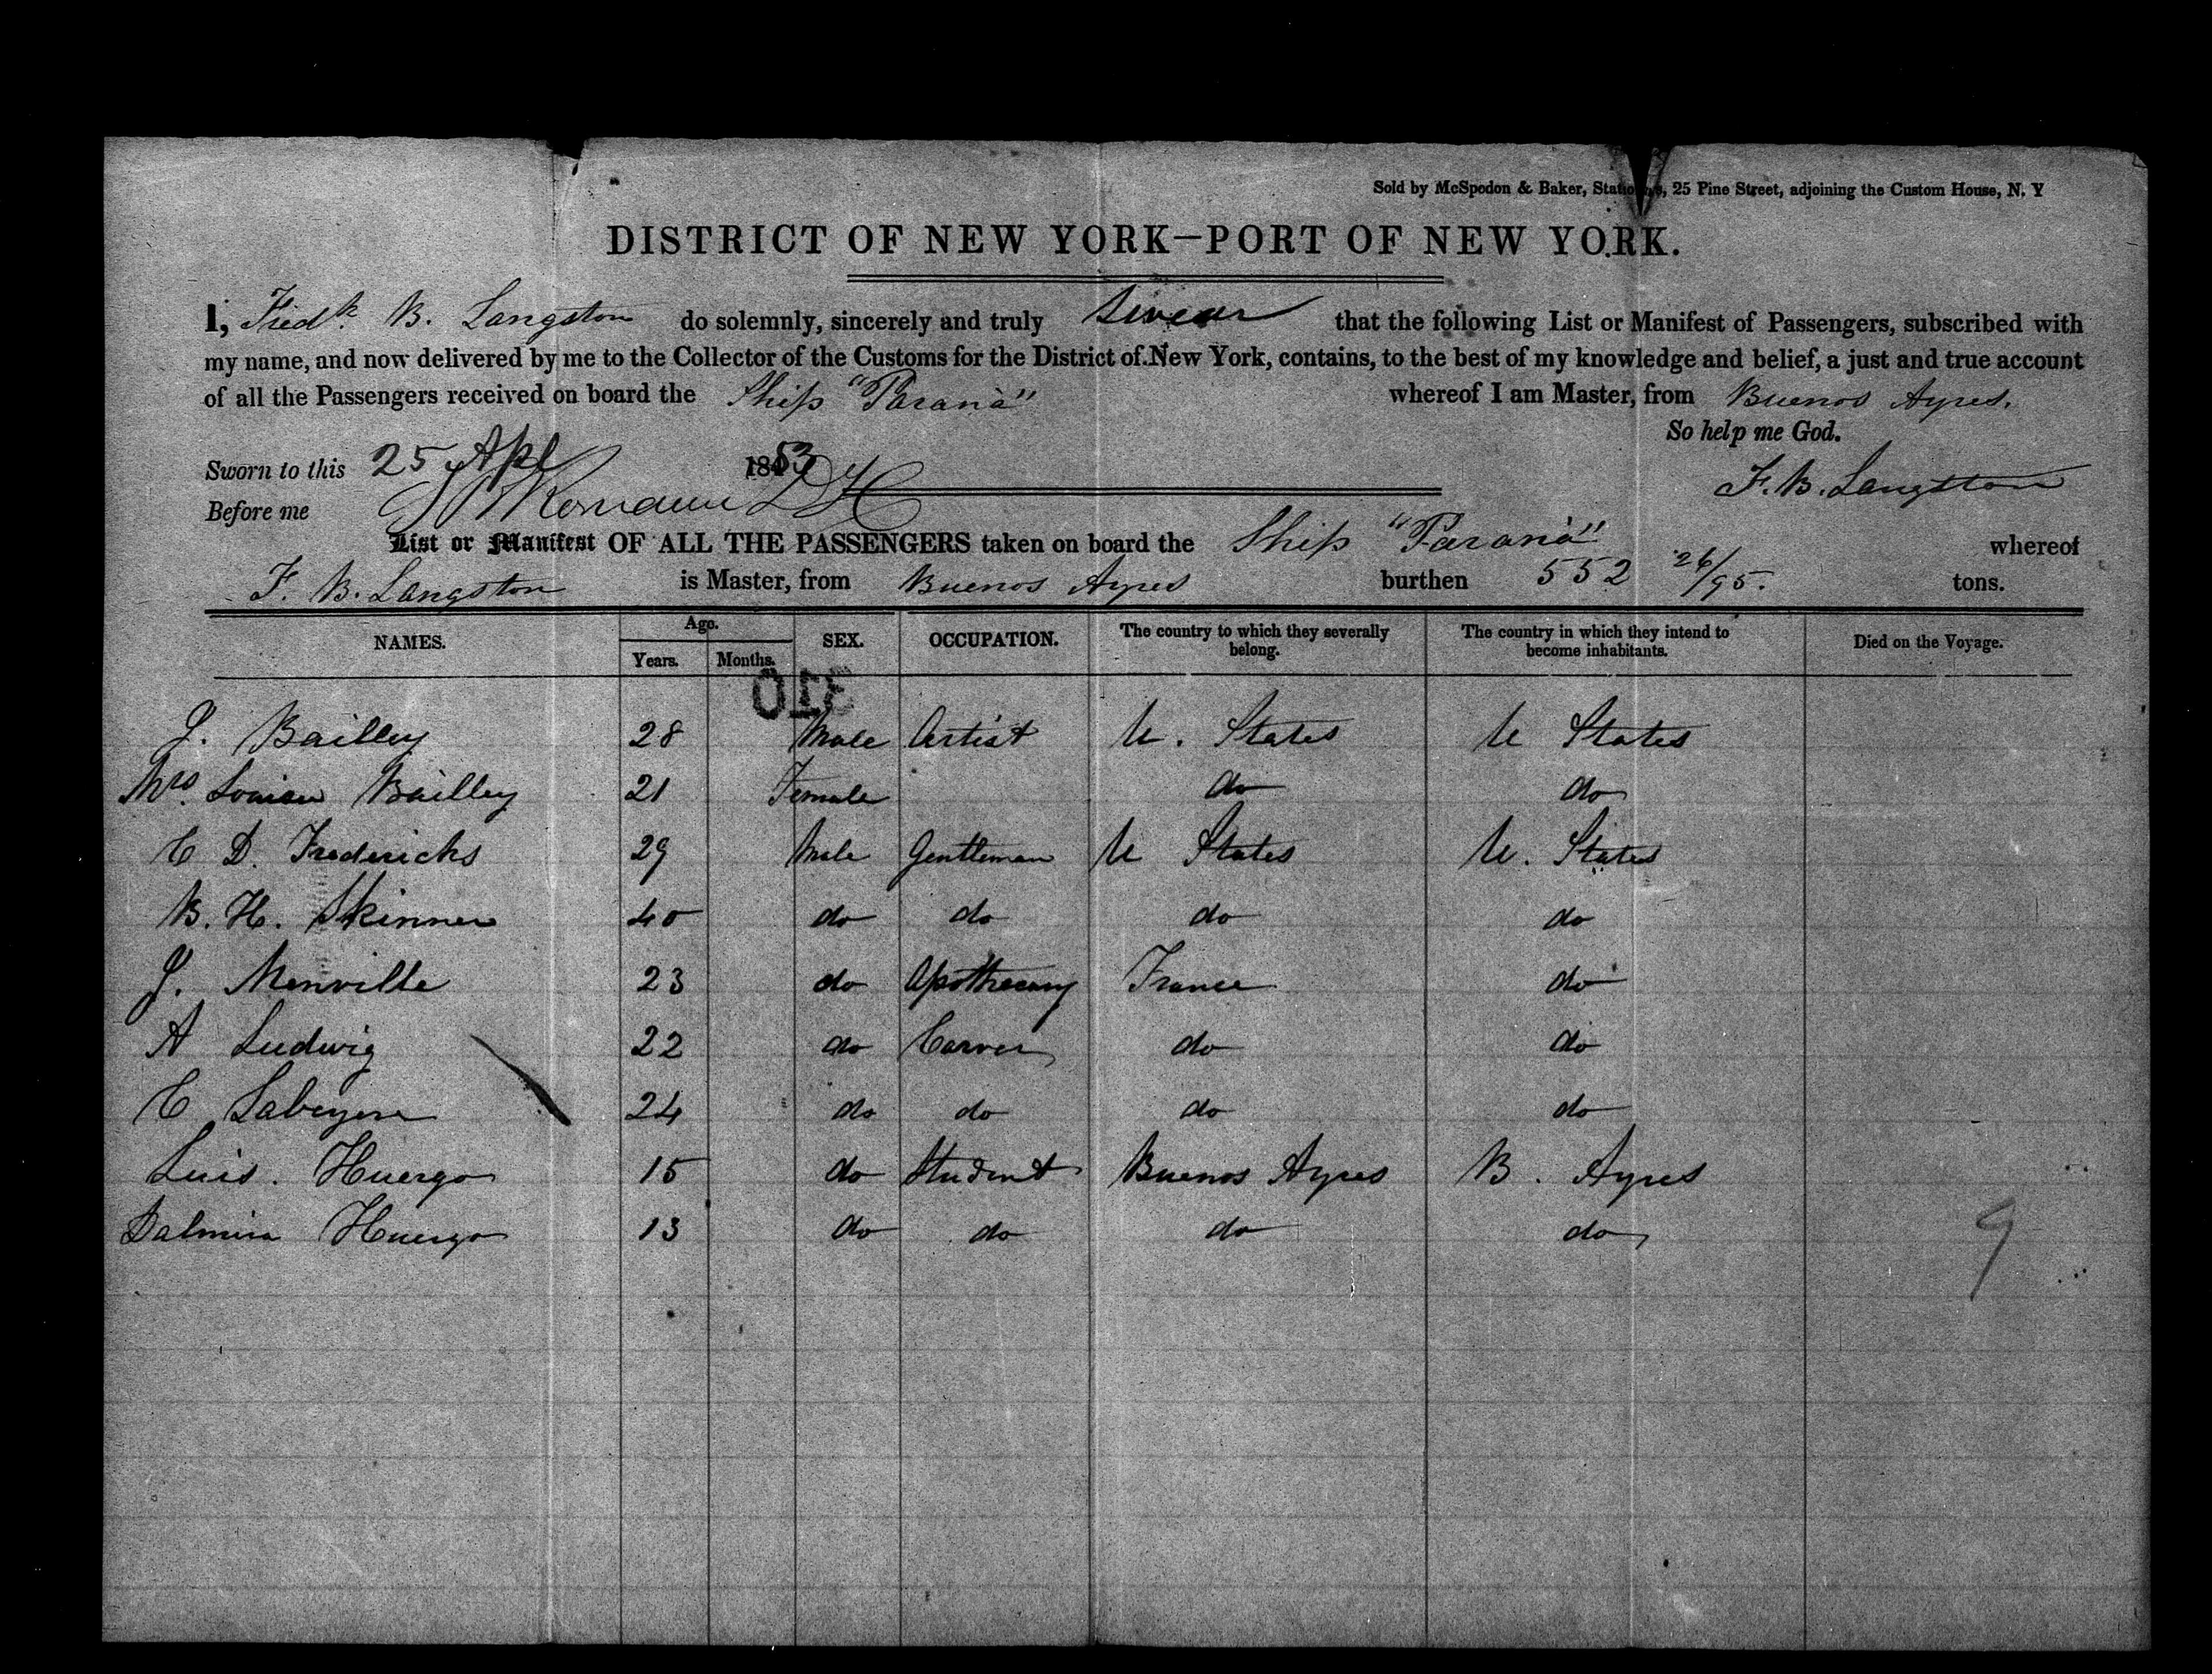 Sold by McSpedon & Baker, Stationers, 25 Pine Street, adjoining the Custom House, N. Y
DISTRICT OF NEW YORK—PORT OF NEW YORK.
I, Fredk. B. Langston do solemnly, sincerely and truly swear that the following List or Manifest of Passengers, subscribed with
my name, and now delivered by me to the Collector of the Customs for the District of New York, contains, to the best of my knowledge and belief, a just and true account
of all the Passengers received on board the Ship "Parana" whereof I am Master, from Buenos Ayres.
So help me God.
Sworn to this 25 Apl 1853
F. B. Langston
Before me
List or Manifest OF ALL THE PASSENGERS taken on board the Ship "Parana" whereof
F. B. Langston is Master, from Buenos Ayres burthen 552 26/95. tons.
NAMES. Age. Years. Months. SEX. OCCUPATION. The country to which they severally belong. The country in which they intend to become inhabitants. Died on the Voyage.
J. Bailley 28 Male Artist U. States U States
Mrs. Louisa Bailley 21 Female do do
C D. Fredericks 29 Male Gentleman U States U. States
B. H. Skinner 40 do do do do
J. Menville 23 do Apothecary France do
A Ludwig 22 do Carver do do
C Labeyere 24 do do do do
Luis. Huergo 15 do Student Buenos Ayres B. Ayres
Dalmira Huergo 13 do do do do
9